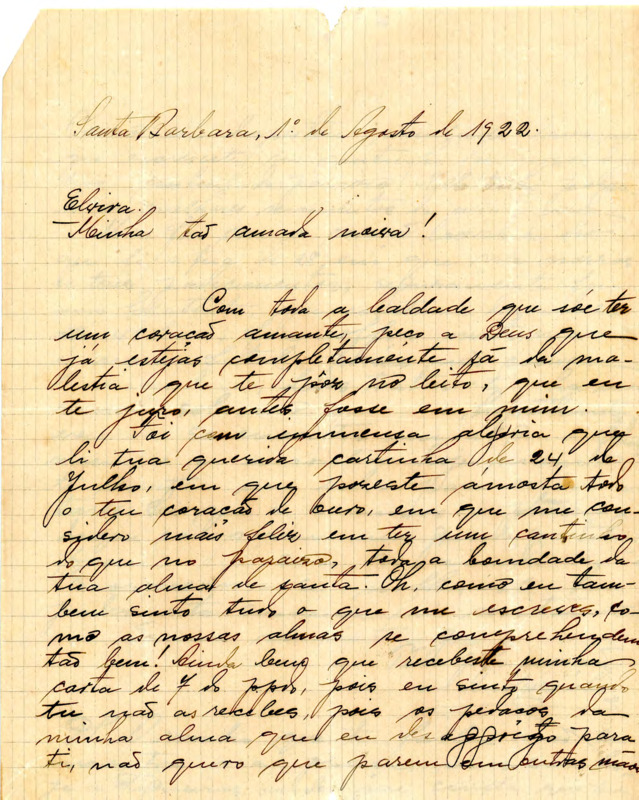 Santa Barbara, 1º de Agosto de 1922.
Elvira.
Minha tão amada noiva!
Com toda a lealdade que sóe ter
um coração amante, peço a Deus que
já estejas completamente sã da mo-
lestia que te pôz no leito, que eu
te juro, antes fosse em mim.
Foi com immensa alegria que
li tua querida cartinha de 24 de
Julho, em que pozeste á mosta todo
o teu coração de ouro, em que me con-
sidero mais feliz em ter um cantinho
do que no paraizo, toda a bondade da
tua alma de santa. Oh, como eu tam-
bem sinto tudo o que me escreves, co-
mo as nossas almas se comprehendem
tão bem! Ainda bem que recebeste minha
carta de 7 do ppdo, pois eu sinto quando
tu não as recebes, pois os pedaços da
minha alma que eu para
ti, não quero que parem em outras mãos